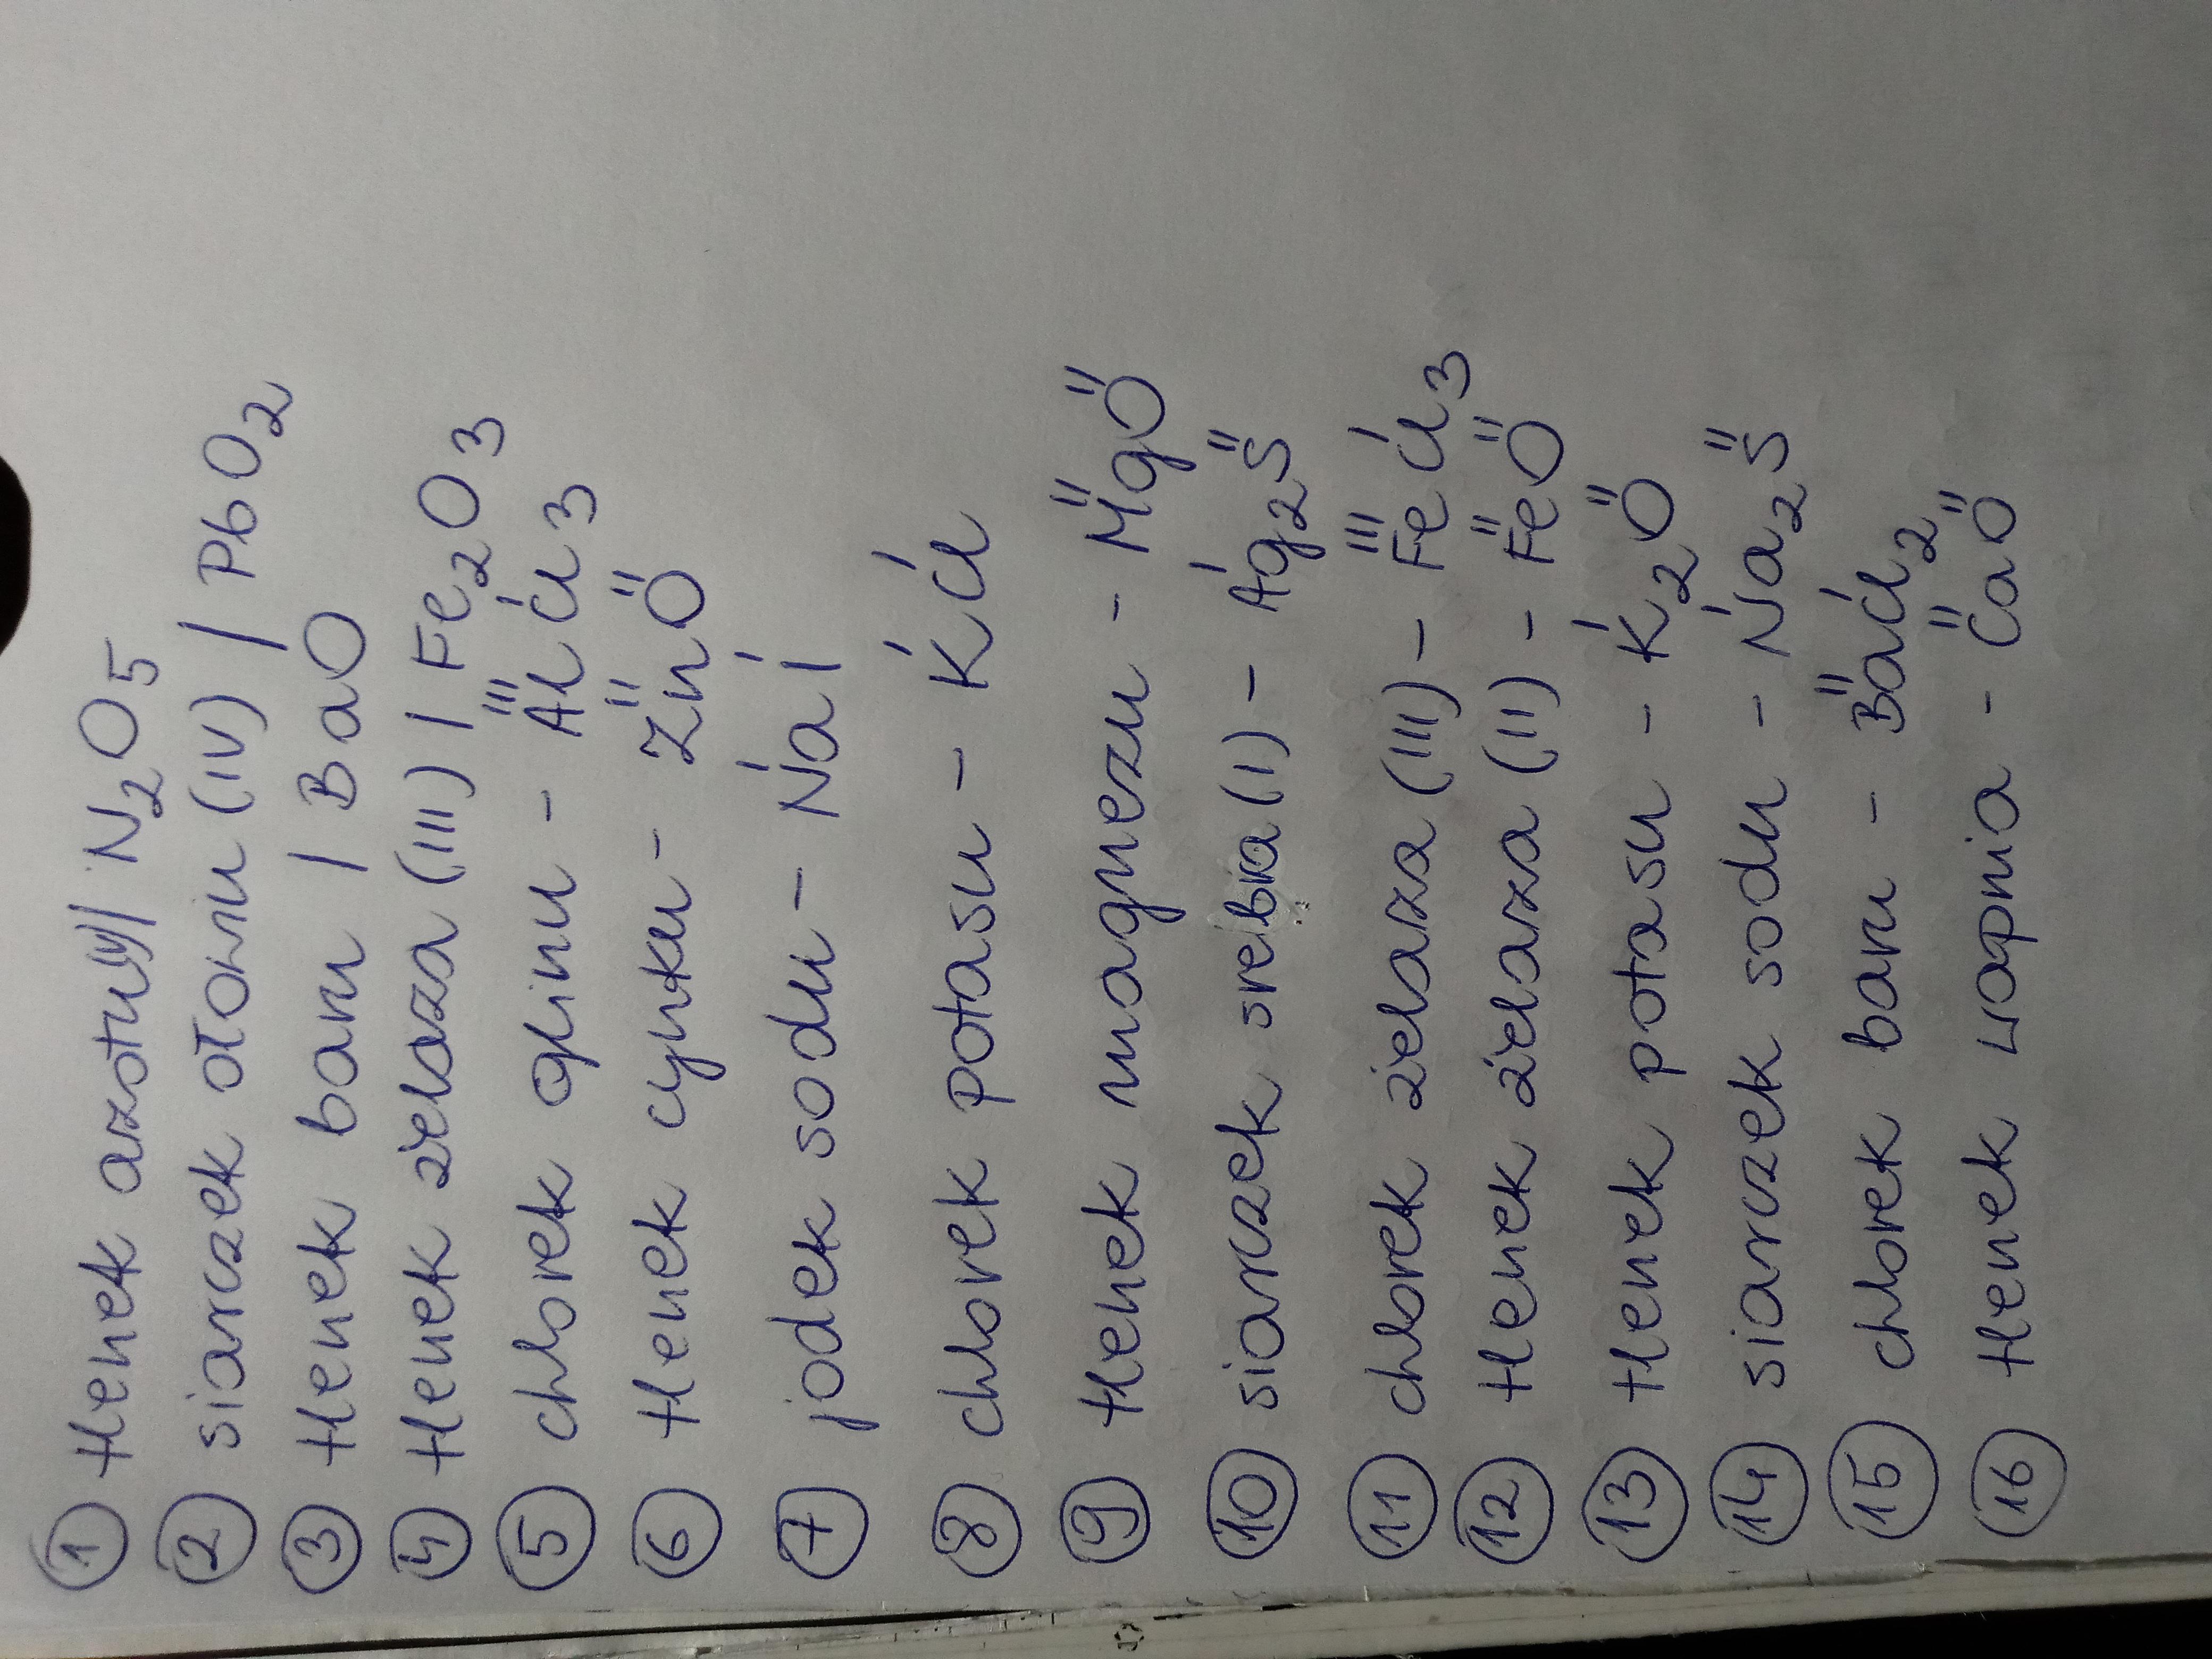 ① tlenek azotu(V) | N₂O₅
② siarczek ołowiu (IV) | PbO₂
③ tlenek baru | BaO
④ tlenek żelaza (III) | Fe₂O₃
⑤ chlorek glinu - AlᴵᴵᴵClᴵ₃
⑥ tlenek cynku - ZnᴵᴵOᴵᴵ
⑦ jodek sodu - NaᴵIᴵ
⑧ chlorek potasu - KᴵClᴵ
⑨ tlenek magnezu - MgᴵᴵOᴵᴵ
⑩ siarczek srebra (I) - Agᴵ₂Sᴵᴵ
⑪ chlorek żelaza (III) - FeᴵᴵᴵClᴵ₃
⑫ tlenek żelaza (II) - FeᴵᴵOᴵᴵ
⑬ tlenek potasu - Kᴵ₂Oᴵᴵ
⑭ siarczek sodu - Naᴵ₂Sᴵᴵ
⑮ chlorek baru - BaᴵᴵClᴵ₂
⑯ tlenek wapnia - CaᴵᴵOᴵᴵ